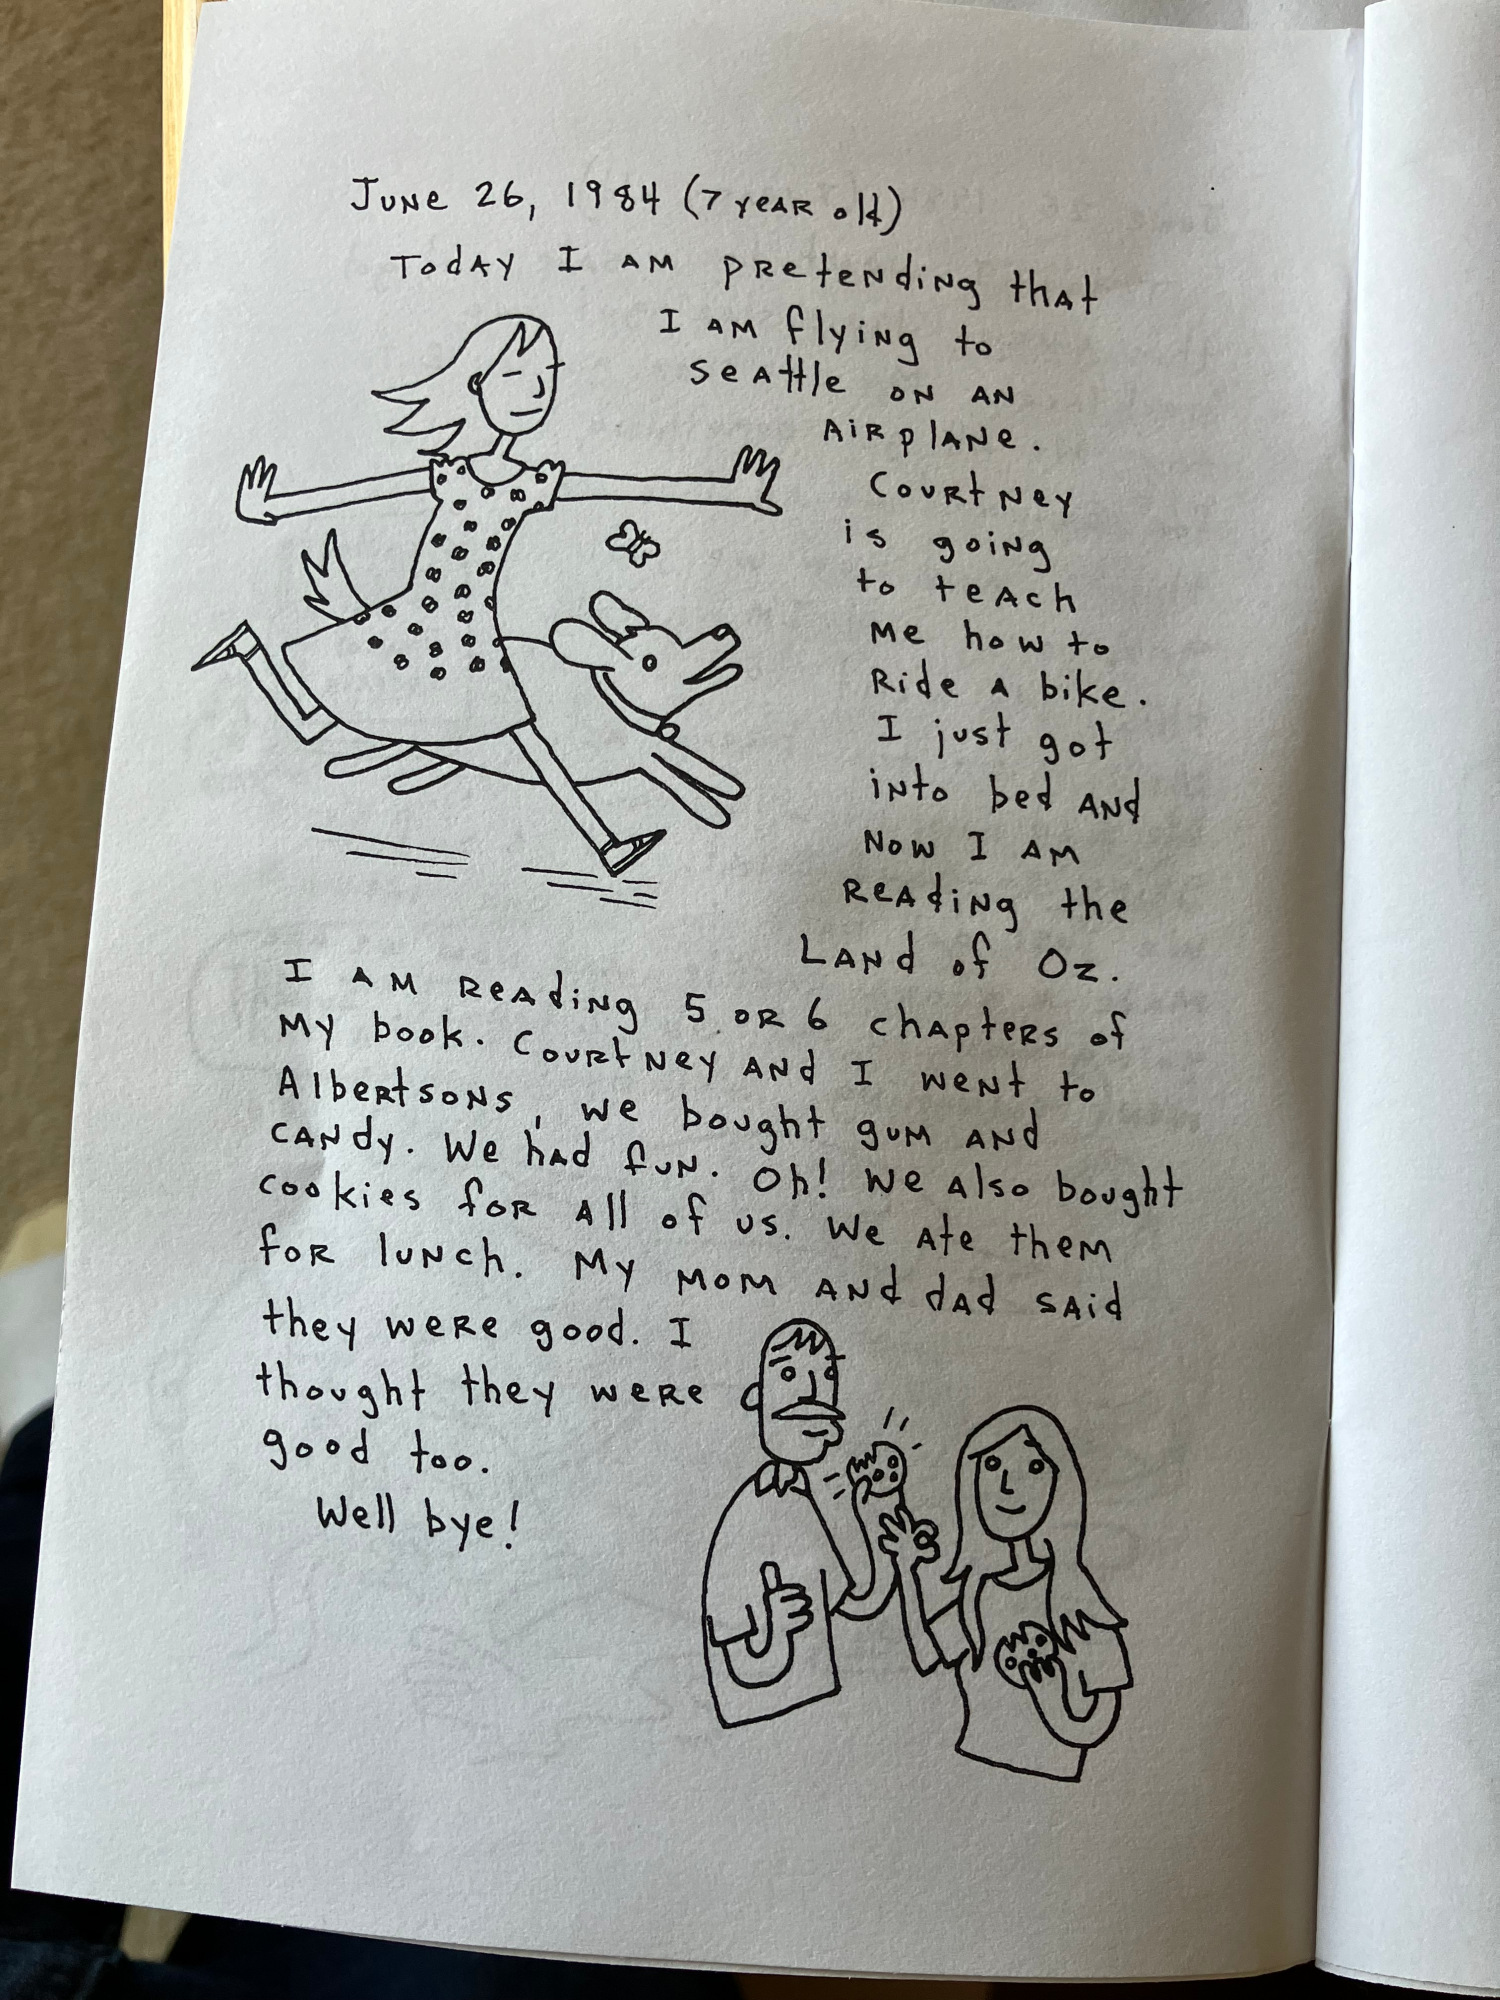 June 26, 1984 (7 year old)
Today I am pretending that
I am flying to
Seattle on an
airplane.
Courtney
is going
to teach
me how to
ride a bike.
I just got
into bed and
now I am
reading the
Land of Oz.
I am reading 5 or 6 chapters of
my book. Courtney and I went to
Albertsons, we bought gum and
candy. We had fun. Oh! We also bought
cookies for all of us. We ate them
for lunch. My mom and dad said
they were good. I
thought they were
good too.
Well bye!